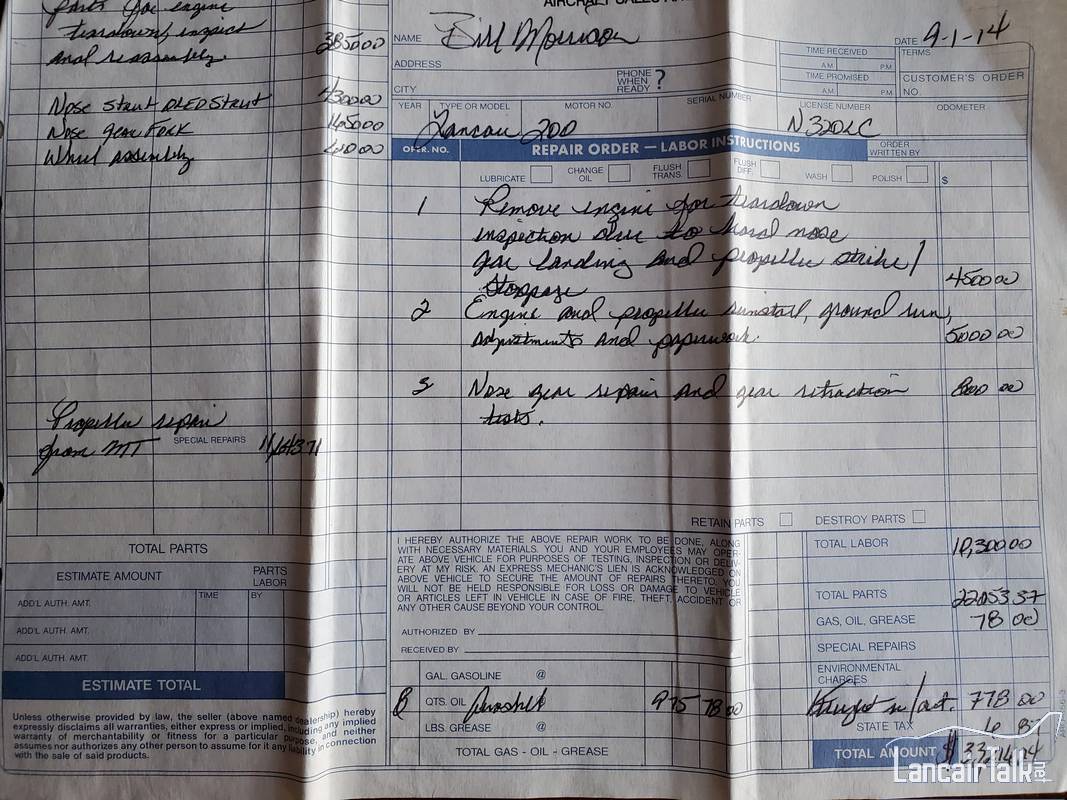 Parts for engine
teardown, inspect
and reassembly 385000
Nose strut OLEO Strut 430000
Nose gear Fork
Wheel assembly
Propeller repair
from MT SPECIAL REPAIRS
TOTAL PARTS
ESTIMATE AMOUNT PARTS LABOR
ADD'L AUTH. AMT. TIME BY
ADD'L AUTH. AMT.
ADD'L AUTH. AMT.
ESTIMATE TOTAL
Unless otherwise provided by law, the seller (above named dealership) hereby
expressly disclaims all warranties, either express or implied, including any implied
warranty of merchantability or fitness for a particular purpose, and neither
assumes nor authorizes any other person to assume for it any liability in connection
with the sale of said products.
NAME Bill Morrison DATE 9-1-14
ADDRESS TIME RECEIVED AM PM TERMS
CITY PHONE WHEN READY? TIME PROMISED AM PM CUSTOMER'S ORDER NO.
YEAR TYPE OR MODEL MOTOR NO. SERIAL NUMBER LICENSE NUMBER ODOMETER
Lancair 200 N320LC
OPER. NO. REPAIR ORDER — LABOR INSTRUCTIONS ORDER WRITTEN BY
LUBRICATE CHANGE OIL FLUSH TRANS. FLUSH DIFF. WASH POLISH $
1 Remove engine for teardown
inspection due to hard nose
gear landing and propeller strike/
Stoppage 4500 00
2 Engine and propeller reinstall, ground run,
adjustments and paperwork. 5000 00
3 Nose gear repair and gear retraction 800 00
tests.
RETAIN PARTS DESTROY PARTS
I HEREBY AUTHORIZE THE ABOVE REPAIR WORK TO BE DONE, ALONG
WITH NECESSARY MATERIALS. YOU AND YOUR EMPLOYEES MAY OPER-
ATE ABOVE VEHICLE FOR PURPOSES OF TESTING, INSPECTION OR DELIV-
ERY AT MY RISK. AN EXPRESS MECHANIC'S LIEN IS ACKNOWLEDGED ON
ABOVE VEHICLE TO SECURE THE AMOUNT OF REPAIRS THERETO. YOU
WILL NOT BE HELD RESPONSIBLE FOR LOSS OR DAMAGE TO VEHICLE
OR ARTICLES LEFT IN VEHICLE IN CASE OF FIRE, THEFT, ACCIDENT OR
ANY OTHER CAUSE BEYOND YOUR CONTROL.
AUTHORIZED BY
RECEIVED BY
GAL. GASOLINE @
8 QTS. OIL Aeroshell 975 78 00
LBS. GREASE @
TOTAL GAS - OIL - GREASE
TOTAL LABOR 10,300 00
TOTAL PARTS
GAS, OIL, GREASE 78 00
SPECIAL REPAIRS
ENVIRONMENTAL CHARGES
Freight 778 00
STATE TAX
TOTAL AMOUNT $
LancairTalk.net